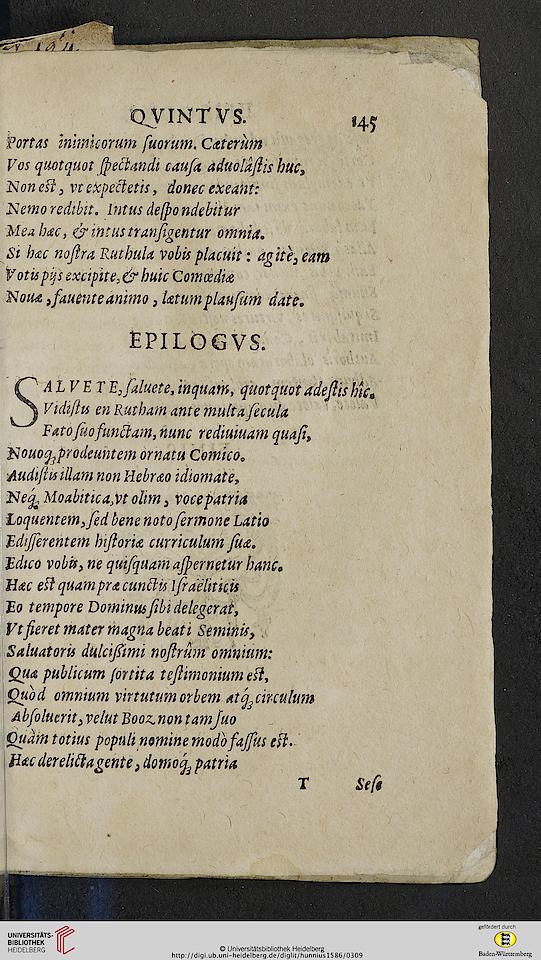 QVINTVS. 145
Portas inimicorum ſuorum. Cæterùm
Vos quotquot ſpectandi cauſa aduolâſtis huc,
Non eſt, vt expectetis, donec exeant:
Nemo redibit. Intus deſpondebitur
Mea hæc, & intus tranſigentur omnia.
Si hæc noſtra Ruthula vobis placuit: agitè, eam
Votis pijs excipite, & huic Comœdiæ
Nouæ, fauente animo, lætum plauſum date.
EPILOGVS.
SALVETE, ſaluete, inquam, quotquot adeſtis hîc.
Vidiſtis en Rutham ante multa ſecula
Fato ſuo functam, nunc rediuiuam quaſi,
Nouoq́; prodeuntem ornatu Comico.
Audiſtis illam non Hebræo idiomate,
Neq́; Moabitica, vt olim, voce patria
Loquentem, ſed bene noto ſermone Latio
Ediſſerentem hiſtoriæ curriculum ſuæ.
Edico vobis, ne quiſquam aſpernetur hanc.
Hæc eſt quam præ cunctis Iſraëliticis
Eo tempore Dominus ſibi delegerat,
Vt fieret mater magna beati Seminis,
Saluatoris dulciſsimi noſtrûm omnium:
Quæ publicum ſortita teſtimonium eſt,
Quòd omnium virtutum orbem atq́; circulum
Abſoluerit, velut Booz non tam ſuo
Quàm totius populi nomine modò faſſus eſt.
Hæc derelicta gente, domoq́; patria
T Seſe
UNIVERSITÄTS-
BIBLIOTHEK
HEIDELBERG
© Universitätsbibliothek Heidelberg
http://digi.ub.uni-heidelberg.de/diglit/hunnius1586/0309
gefördert durch
Baden-Württemberg